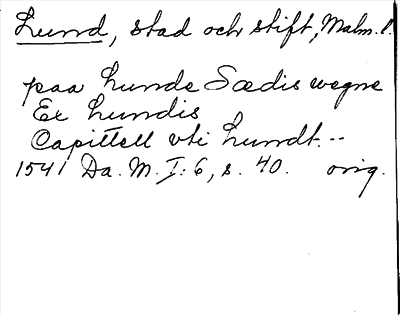 Lund, stad och stift, Malm. l.
paa Lunde Sædis wegne
Ex Lundis
Capittell vti Lundt --
1541 Da. M. I: 6, s. 40. orig.